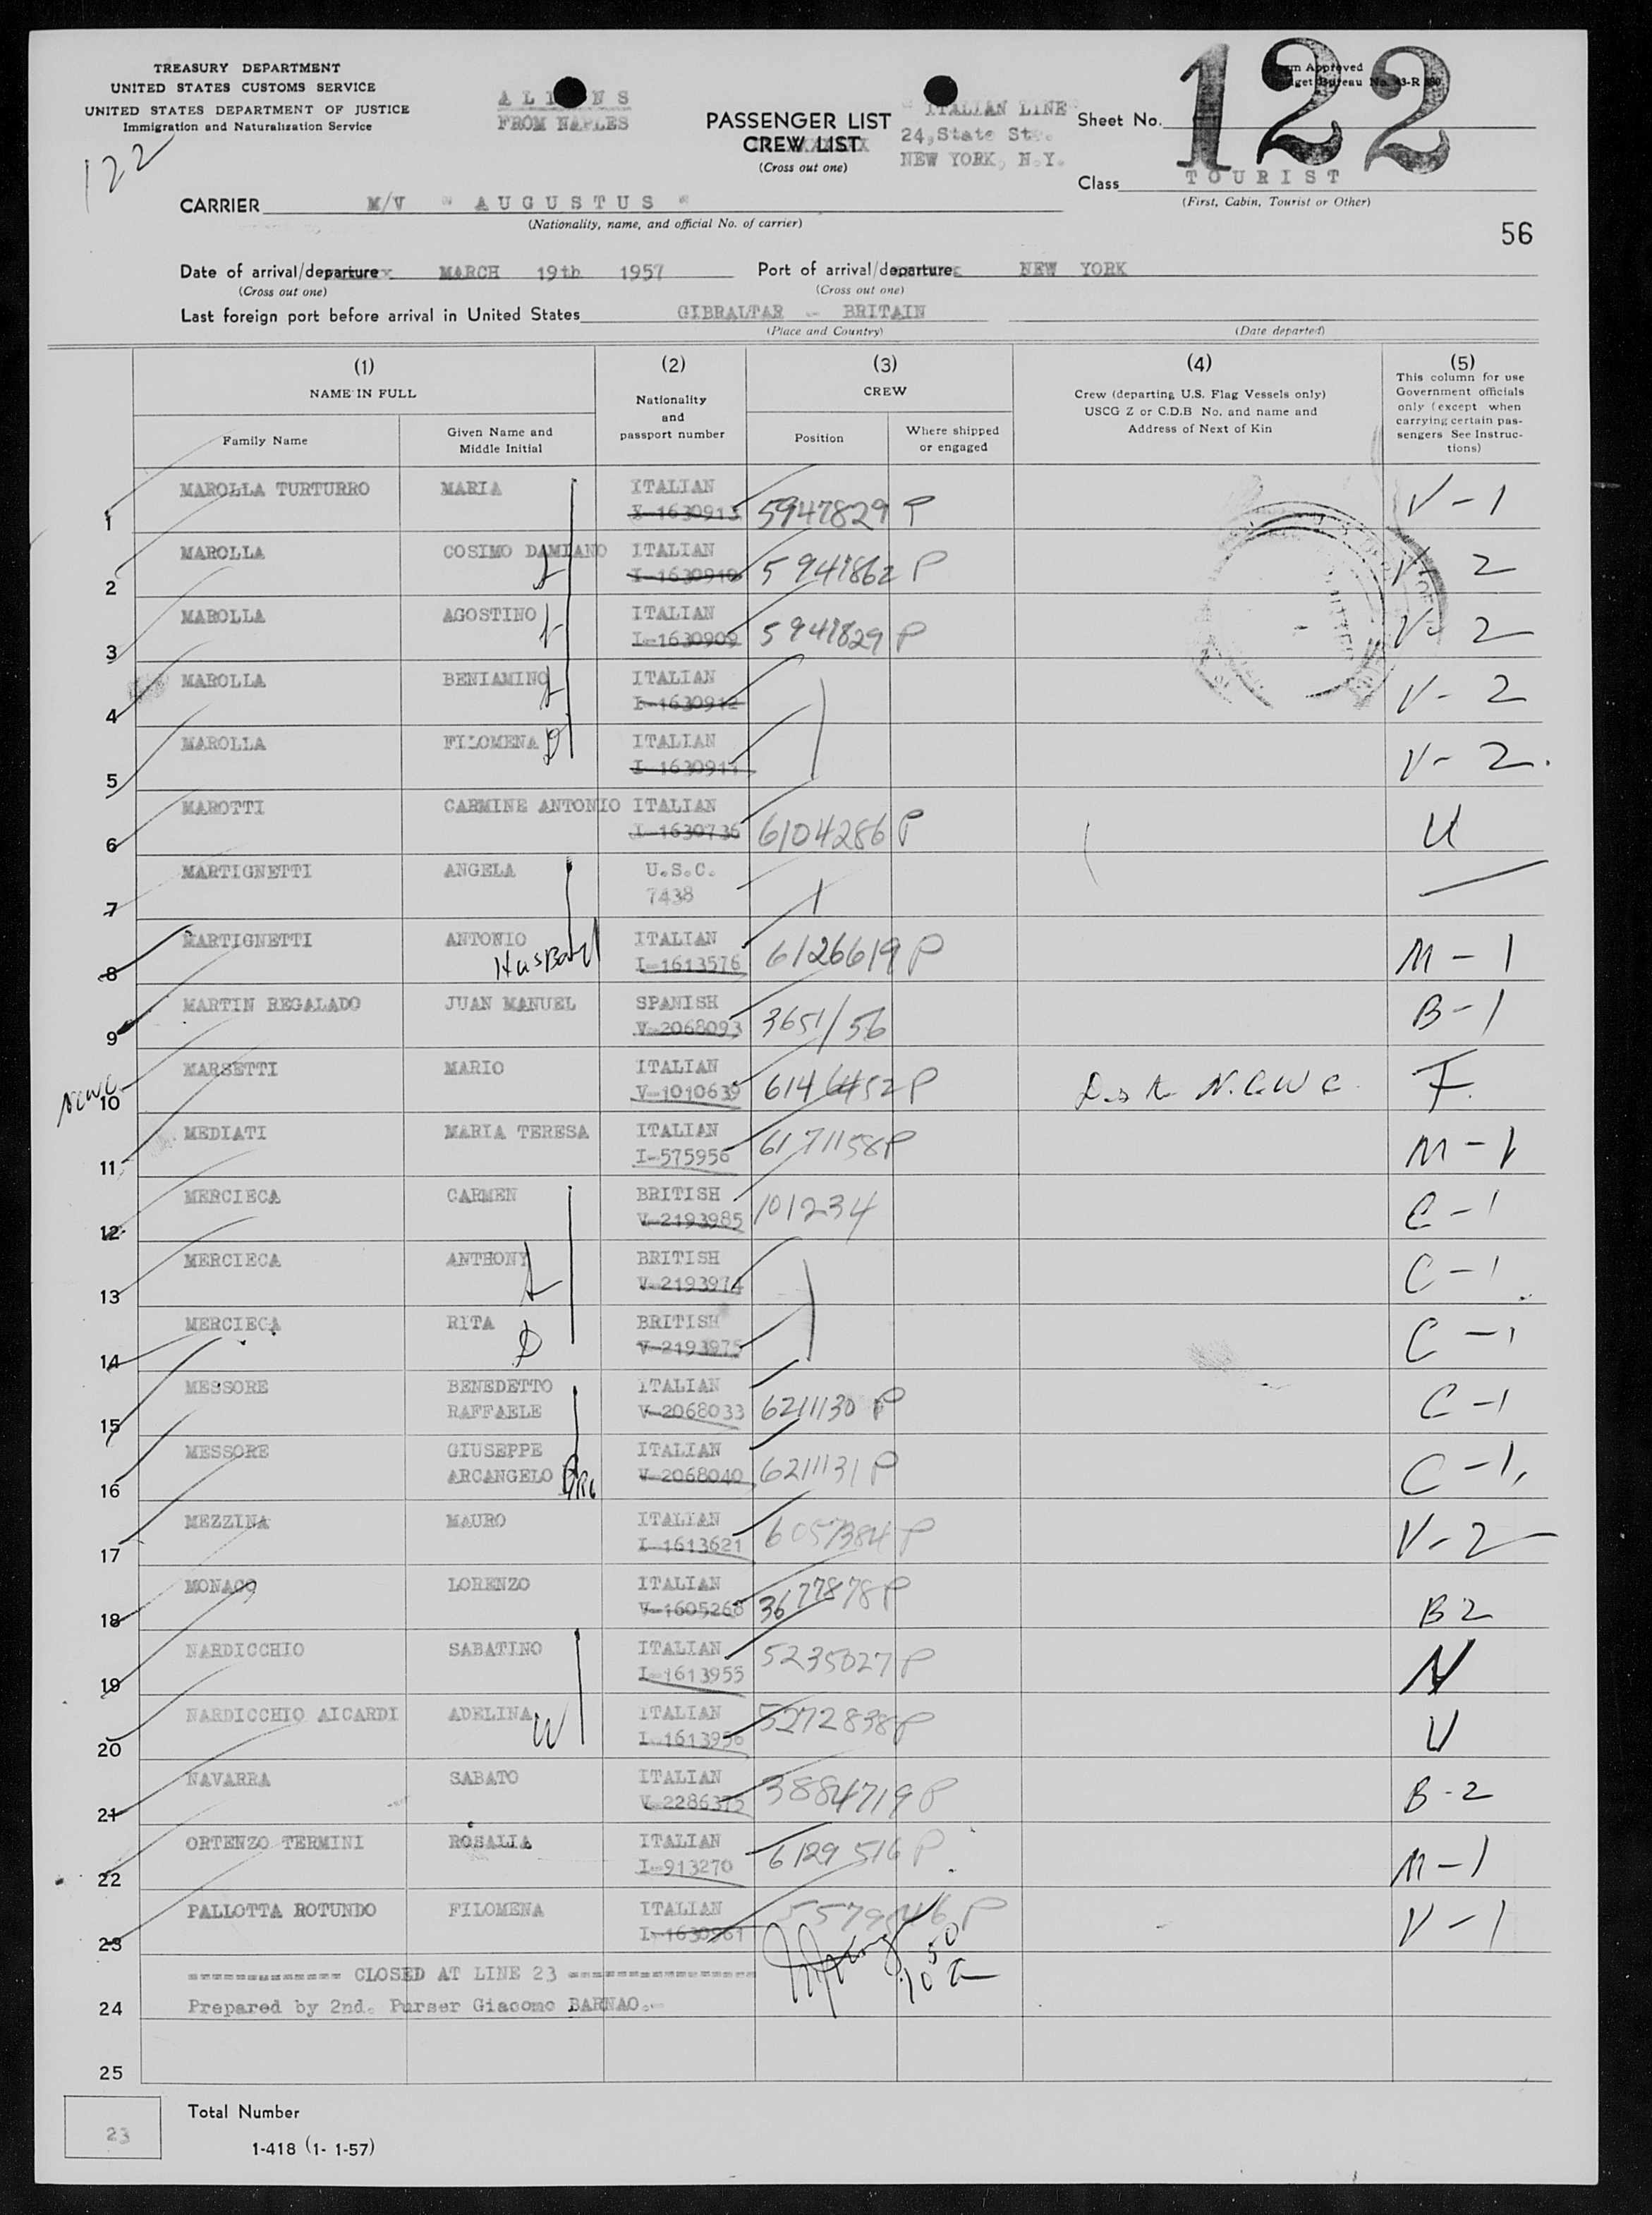 TREASURY DEPARTMENT
UNITED STATES CUSTOMS SERVICE
UNITED STATES DEPARTMENT OF JUSTICE
Immigration and Naturalization Service
122
FROM NAPLES
PASSENGER LIST
CREW LIST
(Cross out one)
ITALIAN LINE
24,State St.
NEW YORK, N.Y.
Form Approved
Sheet No.
122
Class TOURIST
(First, Cabin, Tourist or Other)
CARRIER M/V " AUGUSTUS "
(Nationality, name, and official No. of carrier)
56
Date of arrival/departure MARCH 19th 1957 Port of arrival/departure NEW YORK
(Cross out one) (Cross out one)
Last foreign port before arrival in United States GIBRALTAR - BRITAIN
(Place and Country) (Date departed)
(1) (2) (3) (4) (5)
NAME IN FULL
Family Name
Given Name and
Middle Initial
Nationality
and
passport number
CREW
Position
Where shipped
or engaged
Crew (departing U.S. Flag Vessels only)
USCG Z or C.D.B No. and name and
Address of Next of Kin
This column for use
Government officials
only (except when
carrying certain pas-
sengers See Instruc-
tions)
1 MAROLLA TURTURRO MARIA ITALIAN V-1
I-1630913 5947829 P
2 MAROLLA COSIMO DAMIANO ITALIAN V-2
I-1630910 5947862 P
3 MAROLLA AGOSTINO ITALIAN V-2
I-1630909 5947829 P
4 MAROLLA BENIAMINO ITALIAN V-2
I-1630912
5 MAROLLA FILOMENA D ITALIAN V-2.
I-1630911
6 MAROTTI CARMINE ANTONIO ITALIAN U
I-1630736 6104286 P
7 MARTIGNETTI ANGELA U.S.C.
7438
8 MARTIGNETTI ANTONIO ITALIAN M-1
Husband I-1613576 6126619 P
9 MARTIN REGALADO JUAN MANUEL SPANISH B-1
V-2068093 3651/56
NCWC
10 MARSETTI MARIO ITALIAN F.
V-1010639 6146452 P N.C.W.C.
11 MEDIATI MARIA TERESA ITALIAN M-1
I-575956 6171158 P
12 MERCIECA CARMEN BRITISH C-1
V-2193985 101234
13 MERCIECA ANTHONY BRITISH C-1
V-2193974
14 MERCIECA RITA D BRITISH C-1
V-2193975
15 MESSORE BENEDETTO ITALIAN C-1
RAFFAELE V-2068033 6211130 P
16 MESSORE GIUSEPPE ITALIAN C-1,
ARCANGELO Bro V-2068040 6211131 P
17 MEZZINA MAURO ITALIAN V-2
I-1613621 6057384 P
18 MONACO LORENZO ITALIAN B2
V-1605268 3677878 P
19 NARDICCHIO SABATINO ITALIAN N
I-1613955 5235027 P
20 NARDICCHIO AICARDI ADELINA W ITALIAN U
I-1613956 5272838 P
21 NAVARRA SABATO ITALIAN B-2
V-2286375 3884719 P
22 ORTENZO TERMINI ROSALIA ITALIAN M-1
I-913270 6129516 P
23 PALLOTTA ROTUNDO FILOMENA ITALIAN V-1
I-1630961
------------ CLOSED AT LINE 23 ---------------
24 Prepared by 2nd. Purser Giacomo BARNAO.-
25
23
Total Number
1-418 (1- 1-57)